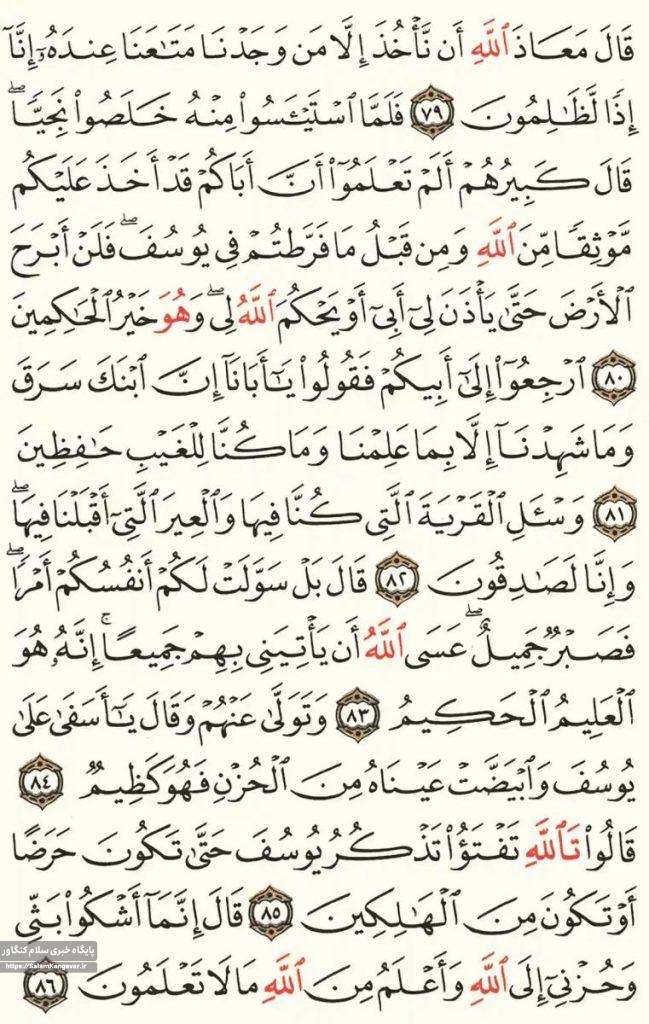 قَالَ مَعَاذَ ٱللَّهِ أَن نَّأۡخُذَ إِلَّا مَن وَجَدۡنَا مَتَٰعَنَا عِندَهُۥٓ إِنَّآ
إِذٗا لَّظَٰلِمُونَ ٧٩ فَلَمَّا ٱسۡتَيۡـَٔسُواْ مِنۡهُ خَلَصُواْ نَجِيّٗاۖ
قَالَ كَبِيرُهُمۡ أَلَمۡ تَعۡلَمُوٓاْ أَنَّ أَبَاكُمۡ قَدۡ أَخَذَ عَلَيۡكُم
مَّوۡثِقٗا مِّنَ ٱللَّهِ وَمِن قَبۡلُ مَا فَرَّطتُمۡ فِي يُوسُفَۖ فَلَنۡ أَبۡرَحَ
ٱلۡأَرۡضَ حَتَّىٰ يَأۡذَنَ لِيٓ أَبِيٓ أَوۡ يَحۡكُمَ ٱللَّهُ لِيۖ وَهُوَ خَيۡرُ ٱلۡحَٰكِمِينَ
٨٠ ٱرۡجِعُوٓاْ إِلَىٰٓ أَبِيكُمۡ فَقُولُواْ يَٰٓأَبَانَآ إِنَّ ٱبۡنَكَ سَرَقَ
وَمَا شَهِدۡنَآ إِلَّا بِمَا عَلِمۡنَا وَمَا كُنَّا لِلۡغَيۡبِ حَٰفِظِينَ
٨١ وَسۡـَٔلِ ٱلۡقَرۡيَةَ ٱلَّتِي كُنَّا فِيهَا وَٱلۡعِيرَ ٱلَّتِيٓ أَقۡبَلۡنَا فِيهَاۖ
وَإِنَّا لَصَٰدِقُونَ ٨٢ قَالَ بَلۡ سَوَّلَتۡ لَكُمۡ أَنفُسُكُمۡ أَمۡرٗاۖ
فَصَبۡرٞ جَمِيلٌۖ عَسَى ٱللَّهُ أَن يَأۡتِيَنِي بِهِمۡ جَمِيعًاۚ إِنَّهُۥ هُوَ
ٱلۡعَلِيمُ ٱلۡحَكِيمُ ٨٣ وَتَوَلَّىٰ عَنۡهُمۡ وَقَالَ يَٰٓأَسَفَىٰ عَلَىٰ
يُوسُفَ وَٱبۡيَضَّتۡ عَيۡنَاهُ مِنَ ٱلۡحُزۡنِ فَهُوَ كَظِيمٞ ٨٤
قَالُواْ تَٱللَّهِ تَفۡتَؤُاْ تَذۡكُرُ يُوسُفَ حَتَّىٰ تَكُونَ حَرَضًا
أَوۡ تَكُونَ مِنَ ٱلۡهَٰلِكِينَ ٨٥ قَالَ إِنَّمَآ أَشۡكُواْ بَثِّي
وَحُزۡنِيٓ إِلَى ٱللَّهِ وَأَعۡلَمُ مِنَ ٱللَّهِ مَا لَا تَعۡلَمُونَ ٨٦
پایگاه خبری سلام کنگاور
https://SalamKangavar.ir